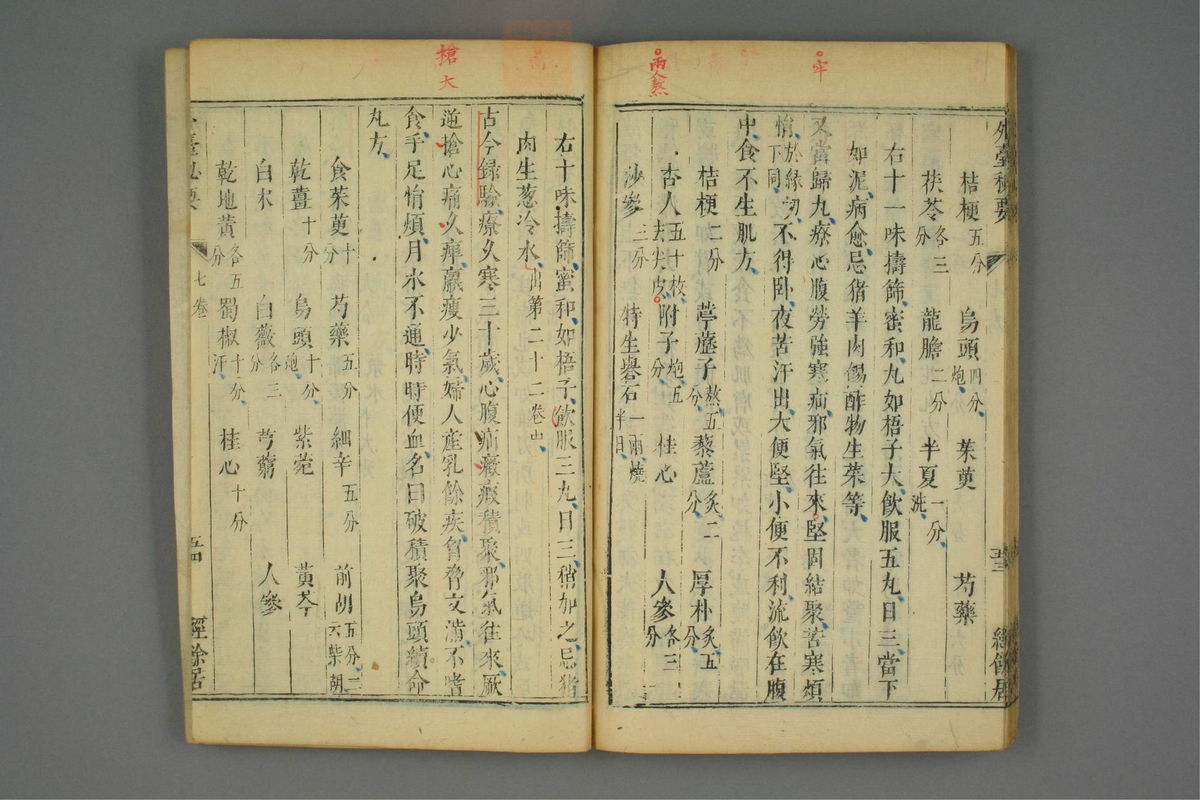 兩熬
牢
外臺秘要
五三
經餘居
桔梗五分 烏頭四分炮 茱萸 芍藥
茯苓各三分 龍膽二分 半夏一分洗
右十一味擣篩蜜和丸如梧子大飲服五丸日三當下
如泥病愈忌猪羊肉餳酢物生菜等
又當歸丸療心腹勞強寒疝邪氣往來堅固結聚苦寒煩
悁於緣切下同不得卧夜苦汗出大便堅小便不利流飲在腹
中食不生肌方
桔梗二分 葶藶子熬五分 藜蘆炙二分 厚朴炙五分
杏人五十枚去尖皮 附子炮五分 桂心 人參各三分
沙參三分 特生礜石一兩燒半日
搶大
右十味擣篩蜜和如梧子飲服三丸日三稍加之忌猪
肉生葱冷水出第二十二卷中
古今録驗療久寒三十歲心腹疝癥瘕積聚邪氣往來厥
逆搶心痛久痺羸瘦少氣婦人産乳餘疾胷脅支滿不嗜
食手足悁煩月水不通時時便血名曰破積聚烏頭續命
丸方
食茱萸十分 芍藥五分 細辛五分 前胡五分一云柴胡
乾薑十分 烏頭十分炮 紫菀 黃芩
白朮 白薇各三分 芎藭 人參
乾地黃各五分 蜀椒十分汗 桂心十分
外臺秘要
七卷
五四
經餘居